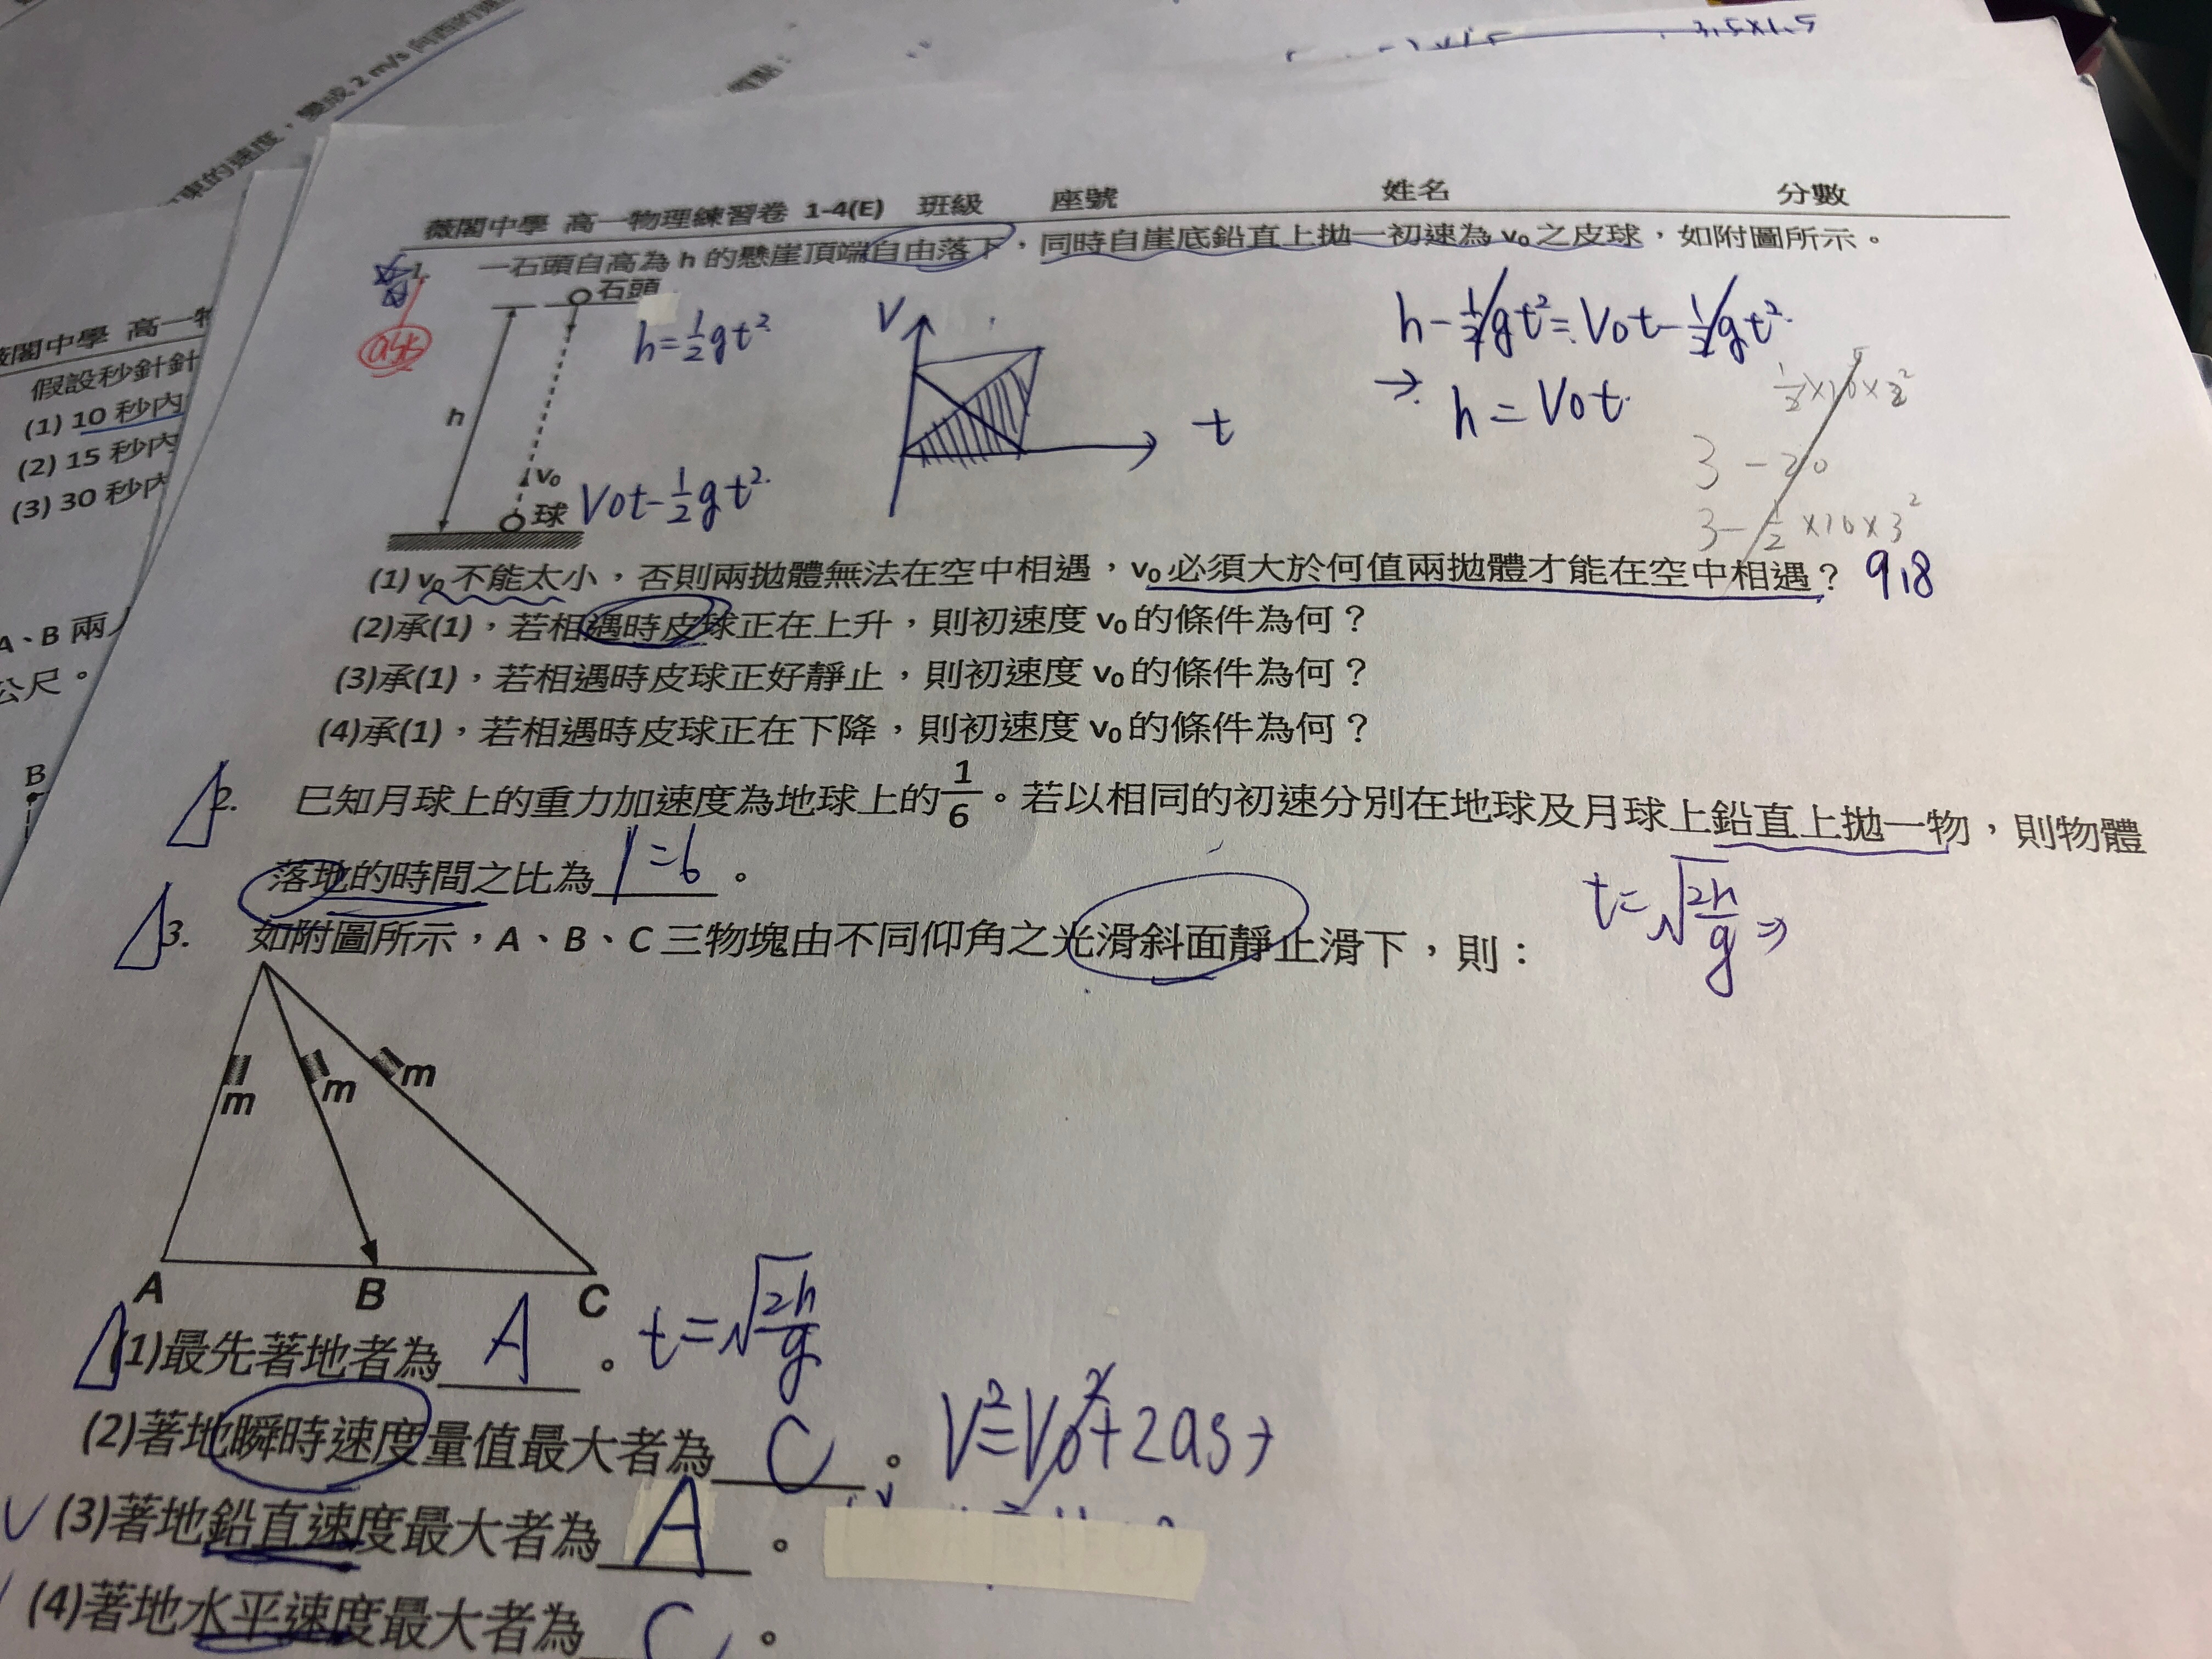 東的速度，變成 2 m/s 向西的速
薇閣中學 高一物理練習卷 1-4(E) 班級 座號 姓名 分數
1. 一石頭自高為 h 的懸崖頂端自由落下，同時自崖底鉛直上拋一初速為 v₀ 之皮球，如附圖所示。
石頭
h=½gt²
h
v₀
球
V0t-½gt²
V
t
h-½gt²=V0t-½gt²
→ h=V0t
½×10×3²
3-20
3-½×10×3²
(1) v₀ 不能太小，否則兩拋體無法在空中相遇，v₀ 必須大於何值兩拋體才能在空中相遇？ 9.8
(2)承(1)，若相遇時皮球正在上升，則初速度 v₀ 的條件為何？
(3)承(1)，若相遇時皮球正好靜止，則初速度 v₀ 的條件為何？
(4)承(1)，若相遇時皮球正在下降，則初速度 v₀ 的條件為何？
2. 已知月球上的重力加速度為地球上的 1/6 。若以相同的初速分別在地球及月球上鉛直上拋一物，則物體
落地的時間之比為 1=6 。
t=√(2h/g) ⇒
3. 如附圖所示，A、B、C 三物塊由不同仰角之光滑斜面靜止滑下，則：
m
m
m
A
B
C
(1)最先著地者為 A 。 t=√(2h/g)
(2)著地瞬時速度量值最大者為 C 。 V²=V0²+2as
(3)著地鉛直速度最大者為 A 。
(4)著地水平速度最大者為 C 。
薇閣中學 高一物
假設秒針針
(1) 10 秒內
(2) 15 秒內
(3) 30 秒內
A、B 兩人
公尺。
B